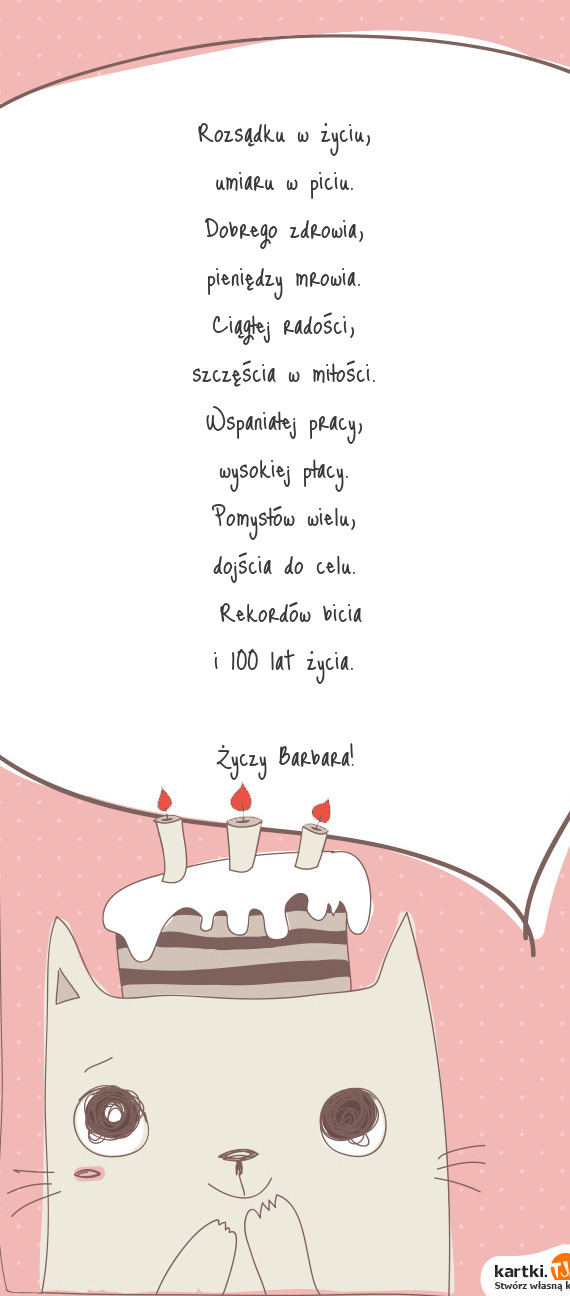 Rozsądku w życiu,
umiaru w piciu.
Dobrego zdrowia,
pieniędzy mrowia.
Ciągłej radości,
szczęścia w miłości.
Wspaniałej pracy,
wysokiej płacy.
Pomysłów wielu,
dojścia do celu.
Rekordów bicia
i 100 lat życia.
Życzy Barbara!
kartki.TJ
Stwórz własną k